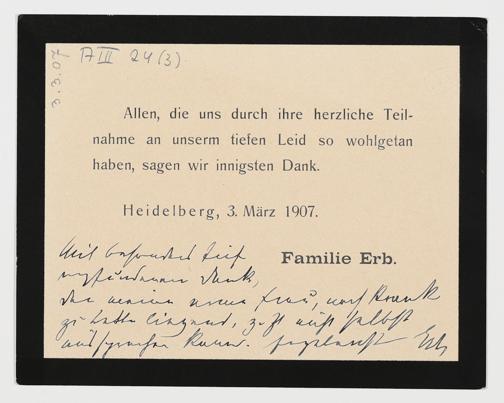 3.3.07
A III 24 (3)
Allen, die uns durch ihre herzliche Teil-
nahme an unserm tiefen Leid so wohlgetan
haben, sagen wir innigsten Dank.
Heidelberg, 3. März 1907.
Familie Erb.
Mit besonders tief
empfundenem Dank,
den meine arme Frau, noch krank
zu Bette liegend, jetzt nicht selbst
aussprechen kann. Erb